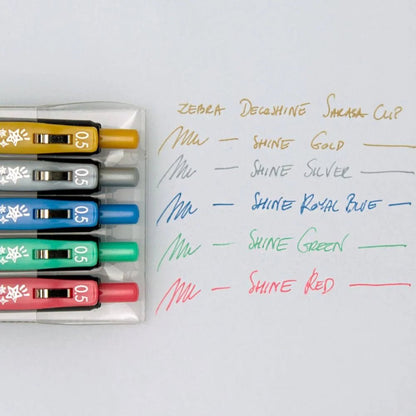 ZEBRA DECOSHINE SARASA CLIP
SHINE GOLD
SHINE SILVER
SHINE ROYAL BLUE
SHINE GREEN
SHINE RED
0.5
0.5
0.5
0.5
0.5